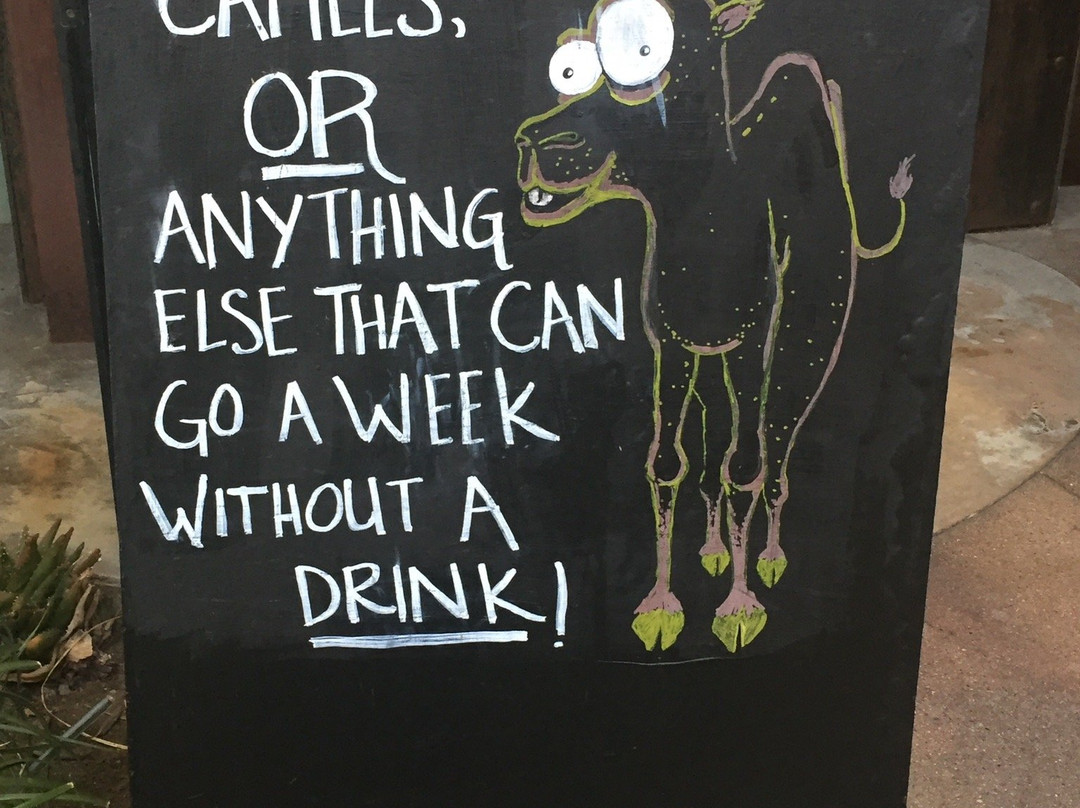 CAMELS,
OR
ANYTHING
ELSE THAT CAN
GO A WEEK
WITHOUT A
DRINK!